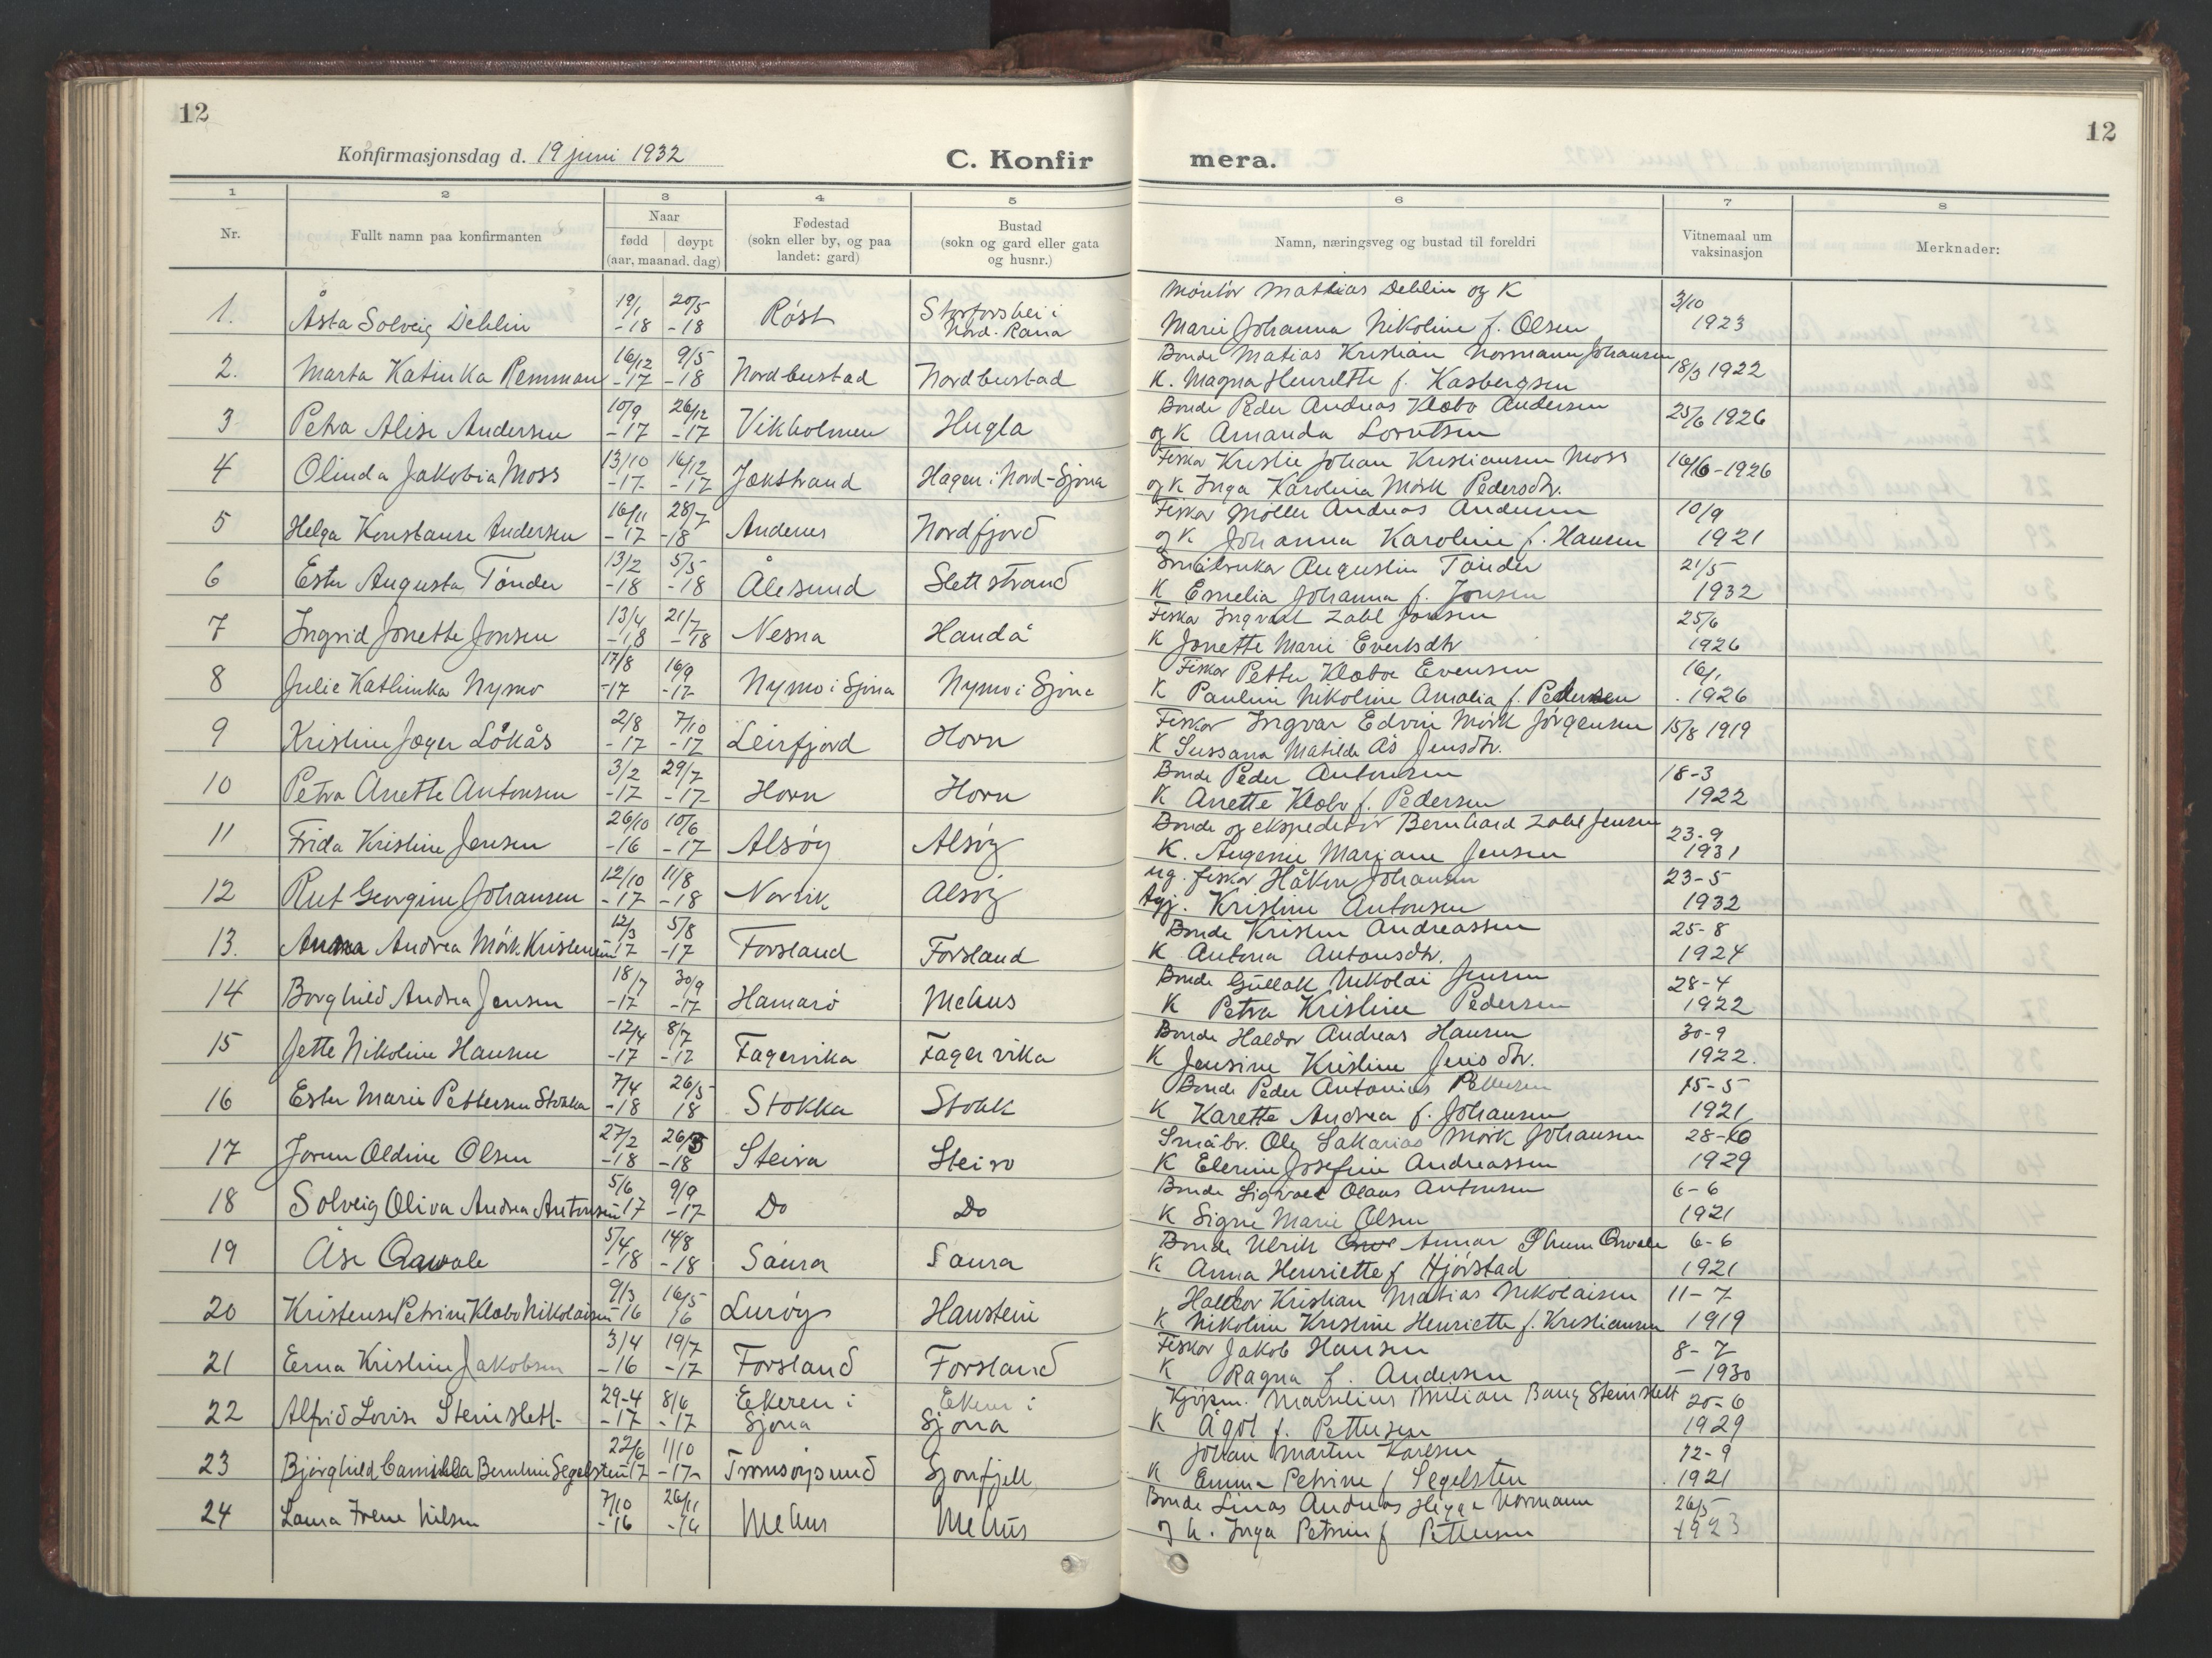 12
12
Konfirmasjonsdag d. 19 juni 1932
C. Konfir mera.
1 2 3 4 5 6 7 8
Nr.
Fullt namn paa konfirmanten
Naar
fødd døypt
(aar, maanad. dag)
Fødestad
(sokn eller by, og paa
landet: gard)
Bustad
(sokn og gard eller gata
og husnr.)
Namn, næringsveg og bustad til foreldri
Vitnemaal um
vaksinasjon
Merknader:
1. Åsta Solveig Dehlin 19/1 -18 20/5 -18 Røst Storforshei i Nord-Rana
Montør Mathias Dehlin og K
Marie Johanna Nikoline f. Olsen 3/10 1923
2. Marta Katinka Remman 16/12 -17 9/5 -18 Nordbustad Nordbustad
Bonde Matias Kristian Normann Johansen
K. Magna Henriette f. Kasbergsen 18/3 1922
3 Petra Alise Andersen 10/9 -17 26/12 -17 Vikholmen Hugla
Bonde Peder Andreas Klæbo Andersen
og K Amanda Lorntsen 25/6 1926
4 Olinda Jakobia Moss 13/10 -17 16/12 -17 Jektstrand Hagen i Nord-Sjona
Fisker Kristie Johan Kristiansen Moss
og K Inga Karolina Mørk Pedersdtr. 16/6-1926
5 Helga Konstanse Andersen 16/11 -17 28/7 -18 Andenes Nordfjord
Fisker Møller Andreas Andersen
og K Johanna Karoline f. Hansen 10/9 1921
6 Ester Augusta Tønder 13/2 -18 5/5 -18 Ålesund Slettstrand
Småbruker Augustin Tønder
K Emelia Johanna f. Jonsen 21/5 1932
7 Ingrid Jonette Jonsen 13/4 -18 21/7 -18 Nesna Handå
Fisker Ingvald Zahl Jonsen
K Jonette Marie Evertsdtr 25/6 1926
8 Julie Kathinka Nymo 17/8 -17 16/9 -17 Nymo i Sjona Nymo i Sjona
Fisker Petter Klæboe Evensen
K Pauline Nikoline Amalia f. Pedersen 16/1 1926
9 Kristine Jæger Løkås 2/8 -17 7/10 -17 Leirfjord Horn
Fisker Ingvar Edvin Mørk Jørgensen
K Sussana Matilde Ås Jensdtr. 15/8 1919
10 Petra Anette Antonsen 3/2 -17 29/7 -17 Horn Horn
Bonde Peder Antonsen
K Anette Klæbo f. Pedersen 18-3 1922
11 Frida Kristine Jensen 26/10 -16 10/6 -17 Alsøy Alsøy
Bonde og ekspeditør Bernhard Zahl Jensen
K. Augenie Marjane Jensen 23-9 1931
12 Rut Georgine Johansen 12/10 -17 11/8 -18 Narvik Alsøy
ug. fisker Håkon Johansen
Pgj. Kristine Antonsen 23-5 1932
13. Anna Andrea Mørk Kristensen 12/3 -17 5/8 -17 Forsland Forsland
Bonde Kristen Andreassen
K Antona Antonsdtr. 25-8 1924
14 Borghild Andrea Jensen 18/7 -17 30/9 -17 Hamarø Mehus
Bonde Gullak Nikolai Jensen
K Petra Kristine Pedersen 28-4 1922
15 Jette Nikoline Hansen 12/4 -17 8/7 -17 Fagervika Fagervika
Bonde Haldor Andreas Hansen
K Jensine Kristine Jensdtr. 30-9 1922.
16 Ester Marie Pettersen Stokka 7/4 -18 26/5 18 Stokka Stokk
Bonde Peder Antonius Pettersen
K Karette Andrea f. Johansen 15-5 1921
17 Jorun Oldine Olsen 27/2 -18 26/5 -18 Steira Steiro
Småbr. Ole Sakarias Mørk Johansen
K Elerine Josefine Andreassen 28-10 1929
18 Solveig Oliva Andrea Antonsen 5/6 -17 9/9 -17 Do Do
Bonde Sigvald Olaus Antonsen
K Signe Marie Olsen 6-6 1921
19 Åse Qvale 5/4 -18 14/8 -18 Saura Saura
Bonde Ulrik Annar Qvale
K Anna Henriette f Hjørstad 6-6 1921
20 Kristense Petrine Klæbo Nikolaisen 9/3 -16 16/5 16 Lurøy Haustein
Haldor Kristian Matias Nikolaisen
K Nikoline Kristine Henriette f. Kristiansen 11-7 1919
21 Erna Kristine Jakobsen 3/4 -16 19/7 -17 Forsland Forsland
Fisker Jakob Hansen
K Ragna f. Andersen 8-7 -1930
22 Alfrid Lovise Steinslett 29-4 -17 8/6 -17 Ekeren i Sjona Ekeren i Sjona
Kjøpm. Marselius Emilian Bang Steinslett
K Ågot f. Pettersen 20-6 1929
23 Bjørghild Camilla Bernhine Segelsten 22/6 17 1/10 -17 Tromsøysund Sjonfjell
Johan Martin Karlsen
K Emma Petrine f Segelsten 12-9 1921
24 Laura Irene Nilsen 7/10 -16 26/11 -16 Mehus Mehus
Bonde Linas Andreas Normann
og k. Inga Petrine f Pettersen 26/5 1923